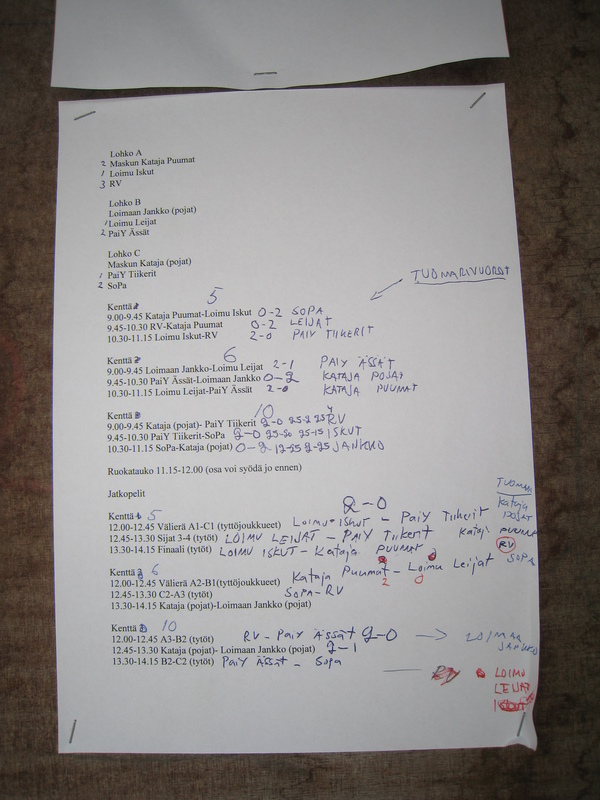 Lohko A
2 Maskun Kataja Puumat
1 Loimu Iskut
3 RV
Lohko B
Loimaan Jankko (pojat)
1 Loimu Leijat
2 PaiY Ässät
Lohko C
Maskun Kataja (pojat)
1 PaiY Tiikerit
2 SoPa
TUOMARIVUOROT
Kenttä 5
9.00-9.45 Kataja Puumat-Loimu Iskut 0-2 SOPA
9.45-10.30 RV-Kataja Puumat 0-2 LEIJAT
10.30-11.15 Loimu Iskut-RV 2-0 PAIY TIIKERIT
Kenttä 6
9.00-9.45 Loimaan Jankko-Loimu Leijat 2-1 PAIY ÄSSÄT
9.45-10.30 PaiY Ässät-Loimaan Jankko 0-2 KATAJA POJAT
10.30-11.15 Loimu Leijat-PaiY Ässät 2-0 KATAJA PUUMAT
Kenttä 10
9.00-9.45 Kataja (pojat)- PaiY Tiikerit 2-0 25-2 RV
9.45-10.30 PaiY Tiikerit-SoPa 2-0 25-20 25-15 ISKUT
10.30-11.15 SoPa-Kataja (pojat) 0-2 12-25 9-25 JANKKO
Ruokatauko 11.15-12.00 (osa voi syödä jo ennen)
Jatkopelit
Kenttä 5 2-0
12.00-12.45 Välierä A1-C1 (tyttöjoukkueet) LOIMU ISKUT - PAIY Tiikerit Kataja POJAT
12.45-13.30 Sijat 3-4 (tytöt) LOIMU LEIJAT - PAIY Tiikerit Kataja PUUMAT
13.30-14.15 Finaali (tytöt) LOIMU ISKUT - Kataja PUUMAT RV
Kenttä 6
12.00-12.45 Välierä A2-B1(tyttöjoukkueet) Kataja Puumat - Loimu Leijat SOPA
2 0
12.45-13.30 C2-A3 (tytöt) SoPa-RV
13.30-14.15 Kataja (pojat)-Loimaan Jankko (pojat)
Kenttä 10
12.00-12.45 A3-B2 (tytöt) RV - PaiY ÄSSÄT 2-0 LOIMAA JANKKO
12.45-13.30 Kataja (pojat)- Loimaan Jankko (pojat) 2-1
13.30-14.15 B2-C2 (tytöt) PaiY ÄSSÄT - Sopa LOIMU LEIJAT